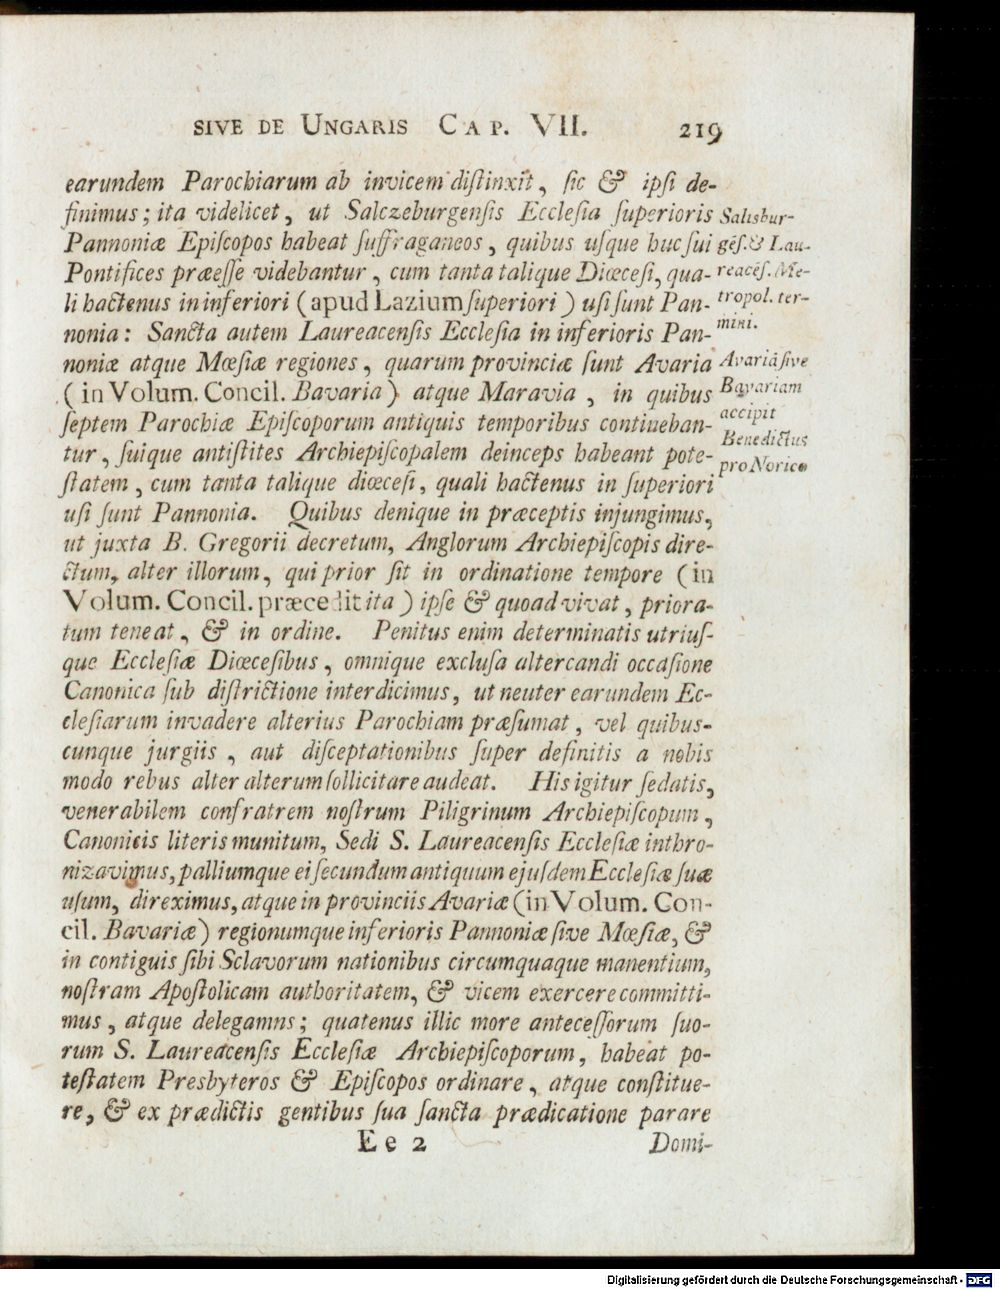 SIVE DE UNGARIS CAP. VII. 219
earundem Parochiarum ab invicem distinxit, sic & ipsi de-
finimus; ita videlicet, ut Salczeburgensis Ecclesia superioris
Pannoniæ Episcopos habeat suffraganeos, quibus usque huc sui
Pontifices præesse videbantur, cum tanta talique Diœcesi, qua-
li hactenus in inferiori (apud Lazium superiori) usi sunt Pan-
nonia: Sancta autem Laureacensis Ecclesia in inferioris Pan-
noniæ atque Mœsiæ regiones, quarum provinciæ sunt Avaria
(in Volum. Concil. Bavaria) atque Maravia, in quibus
septem Parochiæ Episcoporum antiquis temporibus contineban-
tur, suique antistites Archiepiscopalem deinceps habeant pote-
statem, cum tanta talique diœcesi, quali hactenus in superiori
usi sunt Pannonia. Quibus denique in præceptis injungimus,
ut juxta B. Gregorii decretum, Anglorum Archiepiscopis dire-
ctum, alter illorum, qui prior sit in ordinatione tempore (in
Volum. Concil. præcedit ita) ipse & quoad vivat, priora-
tum teneat, & in ordine. Penitus enim determinatis utrius-
que Ecclesiæ Diœcesibus, omnique exclusa altercandi occasione
Canonica sub districtione interdicimus, ut neuter earundem Ec-
clesiarum invadere alterius Parochiam præsumat, vel quibus-
cunque jurgiis, aut disceptationibus super definitis a nobis
modo rebus alter alterum sollicitare audeat. His igitur sedatis,
venerabilem confratrem nostrum Piligrinum Archiepiscopum,
Canonicis literis munitum, Sedi S. Laureacensis Ecclesiæ inthro-
nizavimus, palliumque ei secundum antiquum ejusdem Ecclesiæ suæ
usum, direximus, atque in provinciis Avariæ (in Volum. Con-
cil. Bavariæ) regionumque inferioris Pannoniæ sive Mœsiæ, &
in contiguis sibi Sclavorum nationibus circumquaque manentium,
nostram Apostolicam authoritatem, & vicem exercere committi-
mus, atque delegamns; quatenus illic more antecessorum suo-
rum S. Laureacensis Ecclesiæ Archiepiscoporum, habeat po-
testatem Presbyteros & Episcopos ordinare, atque constitue-
re, & ex prædictis gentibus sua sancta prædicatione parare
Ee 2 Domi-
Salisbur-
gēs. & Lau-
reacēs. Me-
tropol. ter-
mini.
Avariā sive
Bavariam
accipit
Benedictus
pro Norico
Digitalisierung gefördert durch die Deutsche Forschungsgemeinschaft - DFG